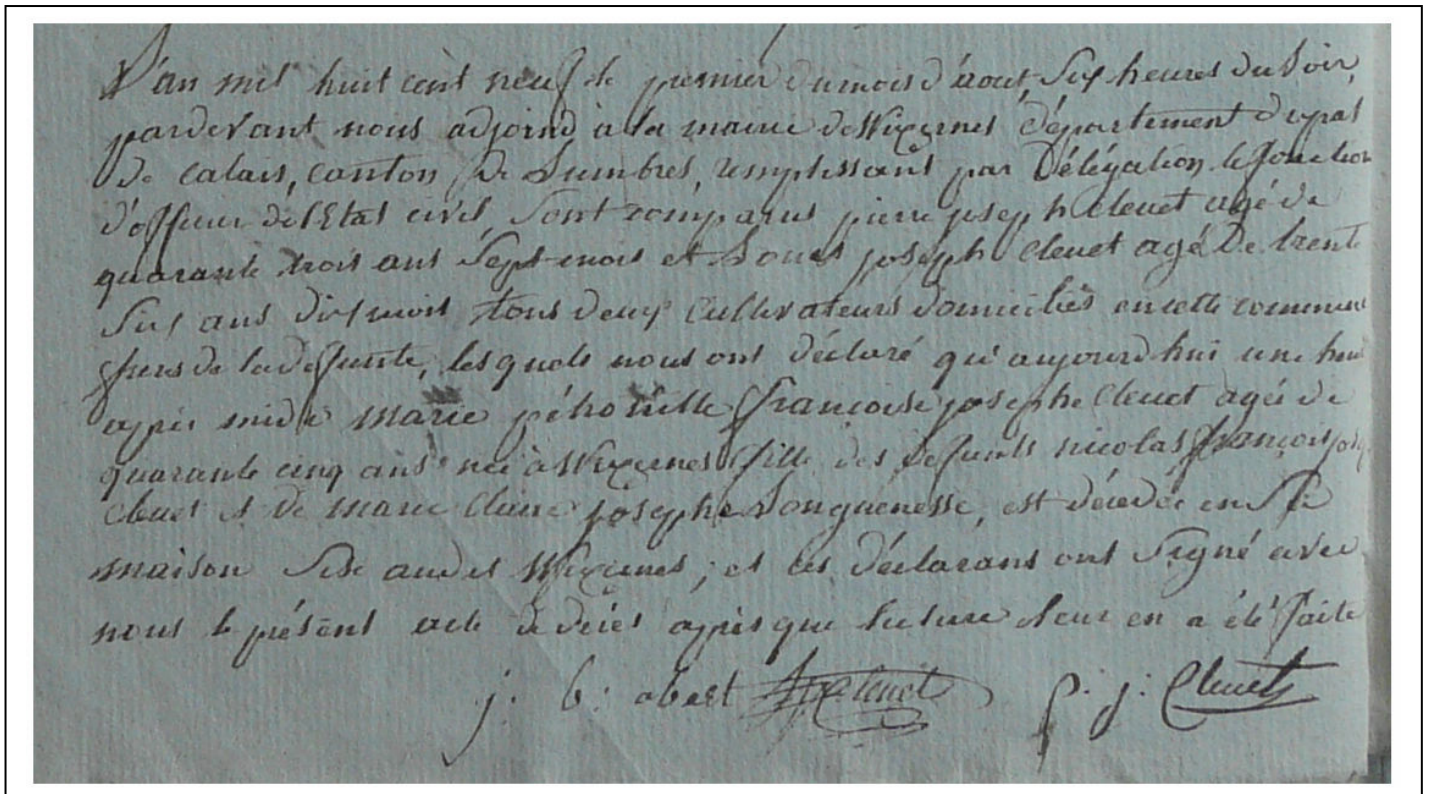 L'an mil huit cent neuf le premier du mois d'aout, six heures du soir,
pardevant nous adjoind à la mairie de Wizernes département du pas
de calais, canton de Lumbres, remplissant par délégation le fonction
d'officier de l'Etat civil, sont comparus pierre joseph Cleuet agé de
quarante trois ans sept mois et Louis joseph Cleuet agé de trente
six ans dix mois tous deux Cultivateurs domiciliés en cette commune
frers de la defunte, lesquels nous ont déclaré qu'aujourd'hui une heure
après midi marie pétronille françoise josephe Cleuet agée de
quarante cinq ans née à Wizernes fille des defunts nicolas françois
Cleuet et de marie Claire josephe Longuenesse, est décédée en sa
maison sise audit Wizernes; et les déclarans ont signé avec
nous le présent acte de décés après que lecture leur en a été faite
j. b. obert Cleuet p. j. Cleuet